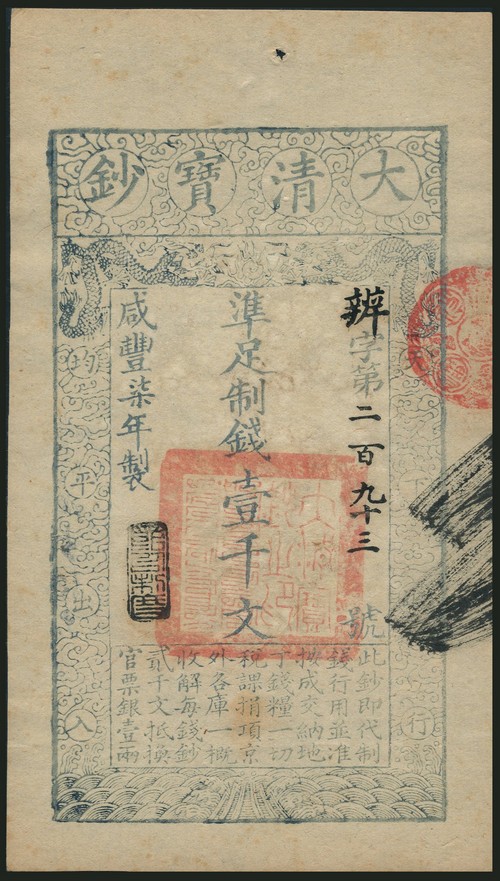 大清寶鈔
天下行
辨字第二百九十三號
準足制錢壹千文
咸豐柒年製
均平出入
此鈔即代制
錢行用並准
按成交納地
丁錢糧一切
稅課捐項京
外各庫一概
收解每錢鈔
貳千文抵換
官票銀壹兩